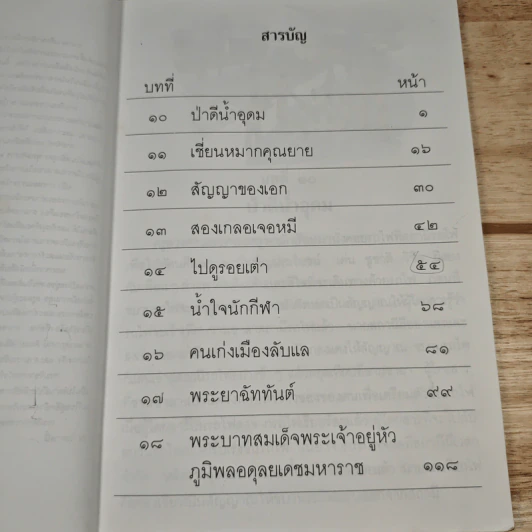 สารบัญ
บทที่ หน้า
๑๐ ป่าดีน้ำอุดม ๑
๑๑ เชี่ยนหมากคุณยาย ๑๖
๑๒ สัญญาของเอก ๓๐
๑๓ สองเกลอเจอหมี ๔๒
๑๔ ไปดูรอยเต่า ๕๔
๑๕ น้ำใจนักกีฬา ๖๘
๑๖ คนเก่งเมืองลับแล ๘๑
๑๗ พระยาฉัททันต์ ๙๙
๑๘ พระบาทสมเด็จพระเจ้าอยู่หัว
ภูมิพลอดุลยเดชมหาราช ๑๑๘